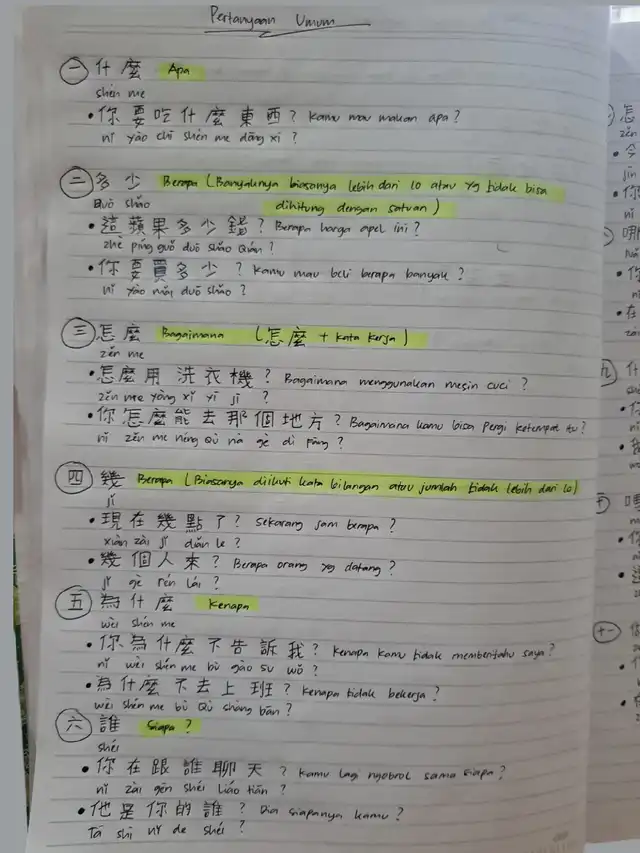 Pertanyaan Umum
一 什麼 Apa
shén me
• 你要吃什麼東西? Kamu mau makan apa?
nǐ yào chī shén me dōng xi?
二 多少 Berapa (Banyaknya biasanya lebih dari 10 atau yg tidak bisa
Duō shǎo dihitung dengan satuan)
• 這蘋果多少錢? Berapa harga apel ini?
zhè píng guǒ duō shǎo Qián?
• 你要買多少? Kamu mau beli berapa banyak?
nǐ yào mǎi duō shǎo?
三 怎麼 Bagaimana (怎麼 + kata kerja)
zěn me
• 怎麼用洗衣機? Bagaimana menggunakan mesin cuci?
zěn me yòng xǐ yī jī?
• 你怎麼能去那個地方? Bagaimana kamu bisa pergi ketempat itu?
nǐ zěn me néng Qù nà gè dì fāng?
四 幾 Berapa (Biasanya diikuti kata bilangan atau jumlah tidak lebih dari 10)
jǐ
• 現在幾點了? Sekarang jam berapa?
xiàn zài jǐ diǎn le?
• 幾個人來? Berapa orang yg datang?
jǐ gè rén lái?
五 為什麼 Kenapa
wèi shén me
• 你為什麼不告訴我? Kenapa kamu tidak memberitahu saya?
nǐ wèi shén me bù gào su wǒ?
• 為什麼不去上班? Kenapa tidak bekerja?
wèi shén me bù Qù shàng bān?
六 誰 Siapa?
shéi
• 你在跟誰聊天? Kamu lagi ngobrol sama siapa?
nǐ zài gēn shéi Liáo tiān?
• 他是你的誰? Dia siapanya kamu?
Tā shì nǐ de shéi?
怎
zěn
• 今
jīn
• 你
nǐ
哪
• 你
• 在
九 什
十
十一